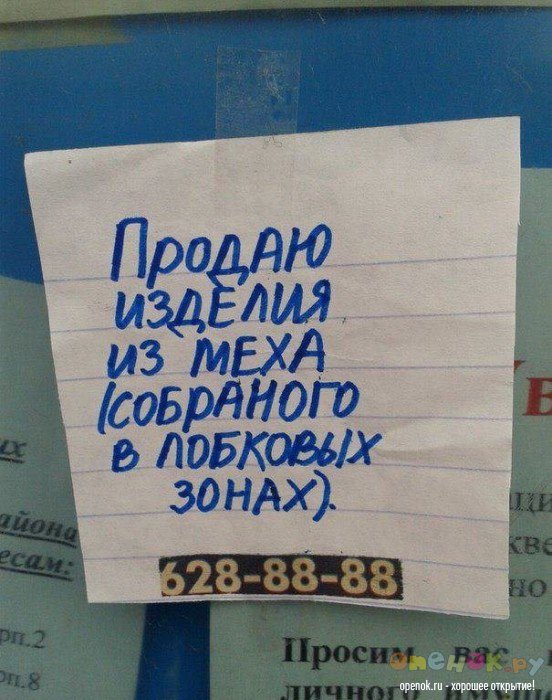 Продаю
изделия
из меха
(собраного
в лобковых
зонах).
628-88-88
йона
есам:
рп.2
рп.8
Просим вас
личног
опенок.ру
openok.ru - хорошее открытие!